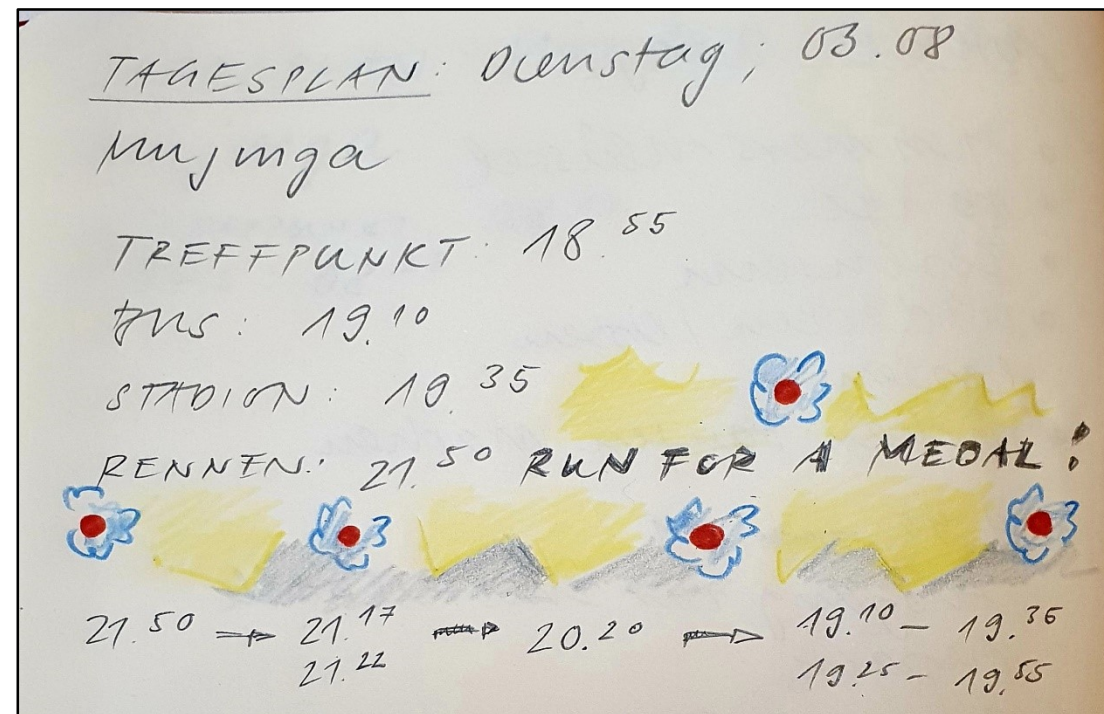 TAGESPLAN: Dienstag, 03.08
Mujinga
TREFFPUNKT: 18.55
BUS: 19.10
STADION: 19.35
RENNEN: 21.50 RUN FOR A MEDAL!
21.50 → 21.17 → 20.20 → 19.10 – 19.35
21.22 19.25 – 19.55